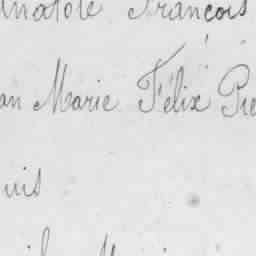 Anatole François
an Marie Félix Pie
uis